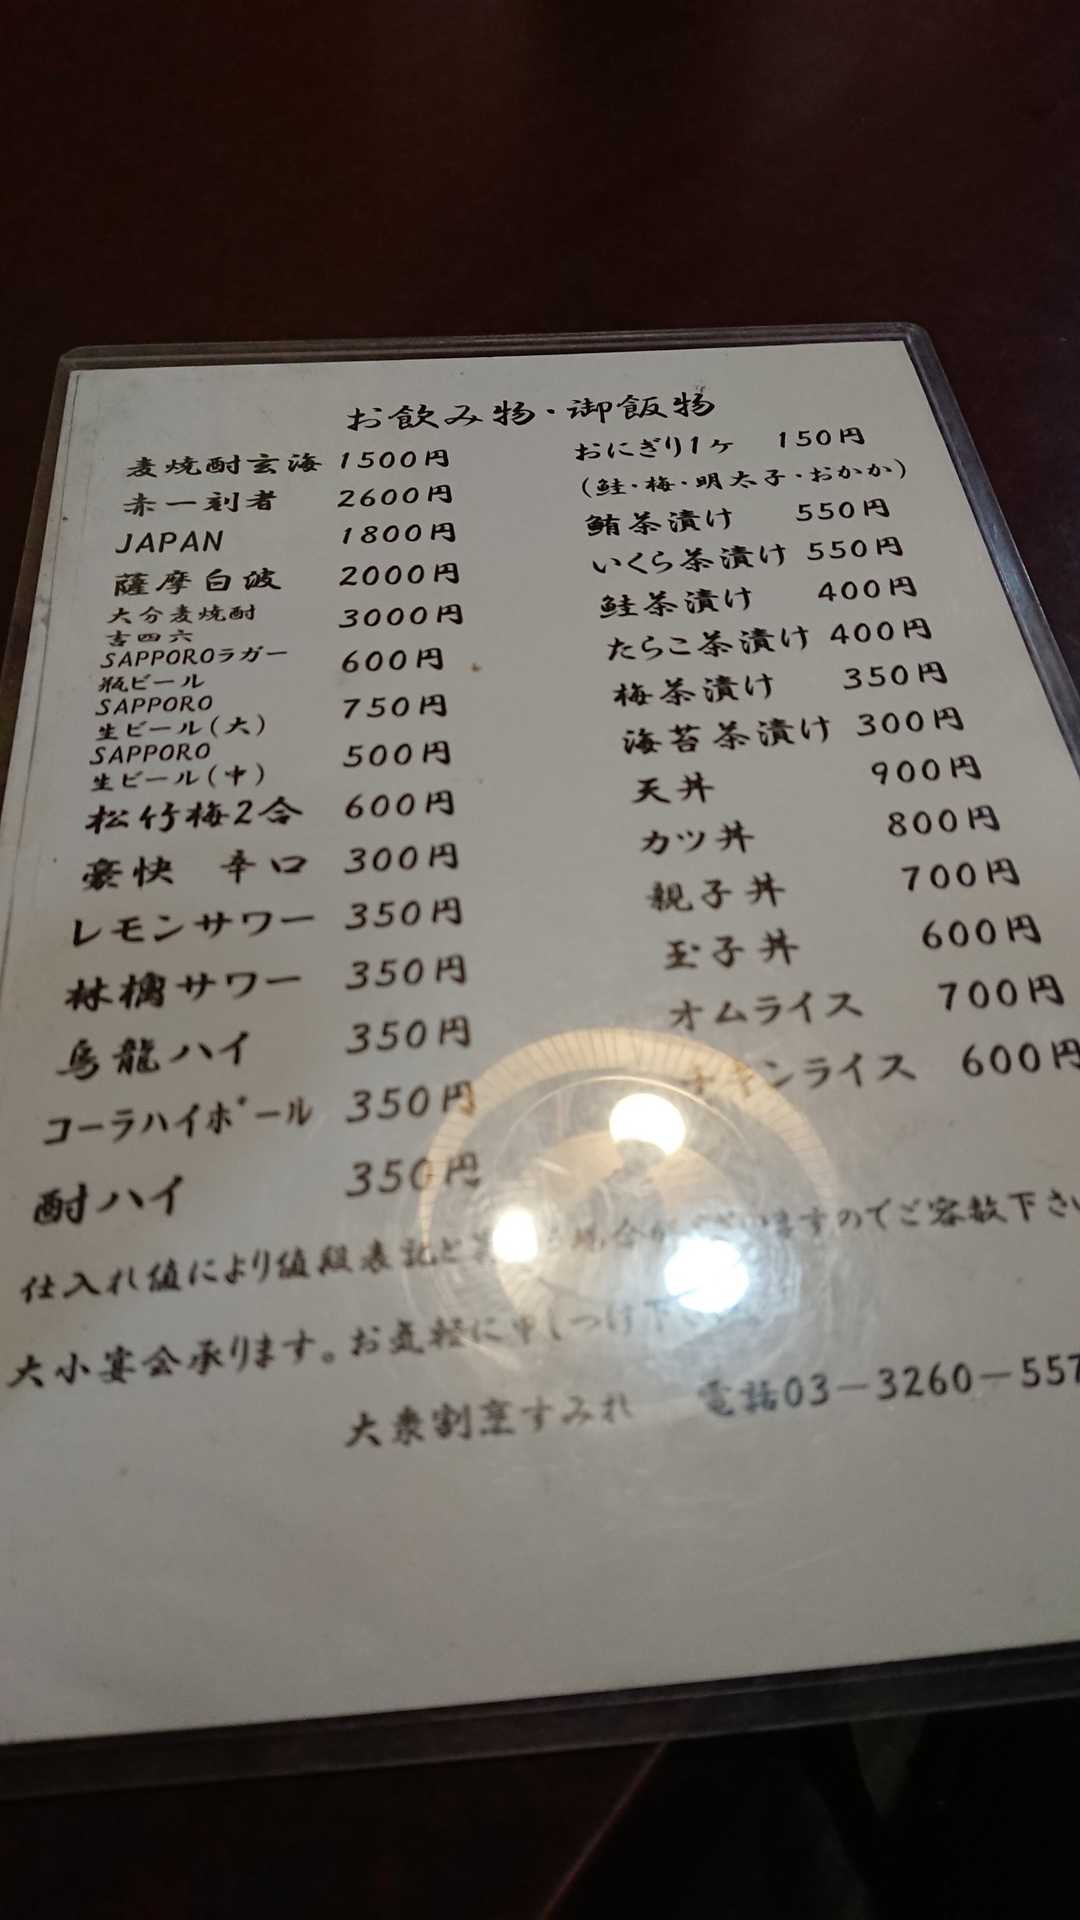 お飲み物・御飯物
麦焼酎玄海 1500円
赤一刻者 2600円
JAPAN 1800円
薩摩白波 2000円
大分麦焼酎
吉四六 3000円
SAPPOROラガー
瓶ビール 600円
SAPPORO
生ビール(大) 750円
SAPPORO
生ビール(中) 500円
松竹梅2合 600円
豪快 辛口 300円
レモンサワー 350円
林檎サワー 350円
烏龍ハイ 350円
コーラハイボール 350円
酎ハイ 350円
おにぎり1ヶ 150円
(鮭・梅・明太子・おかか)
鮪茶漬け 550円
いくら茶漬け 550円
鮭茶漬け 400円
たらこ茶漬け 400円
梅茶漬け 350円
海苔茶漬け 300円
天丼 900円
カツ丼 800円
親子丼 700円
玉子丼 600円
オムライス 700円
チキンライス 600円
仕入れ値により値段表記と 場合がございますのでご容赦下さい
大小宴会承ります。お気軽に申しつけ下さい
大衆割烹すみれ 電話03-3260-557